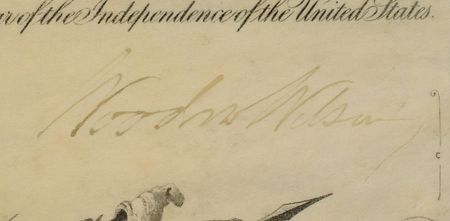 of the Independence of the United States.
Woodrow Wilson